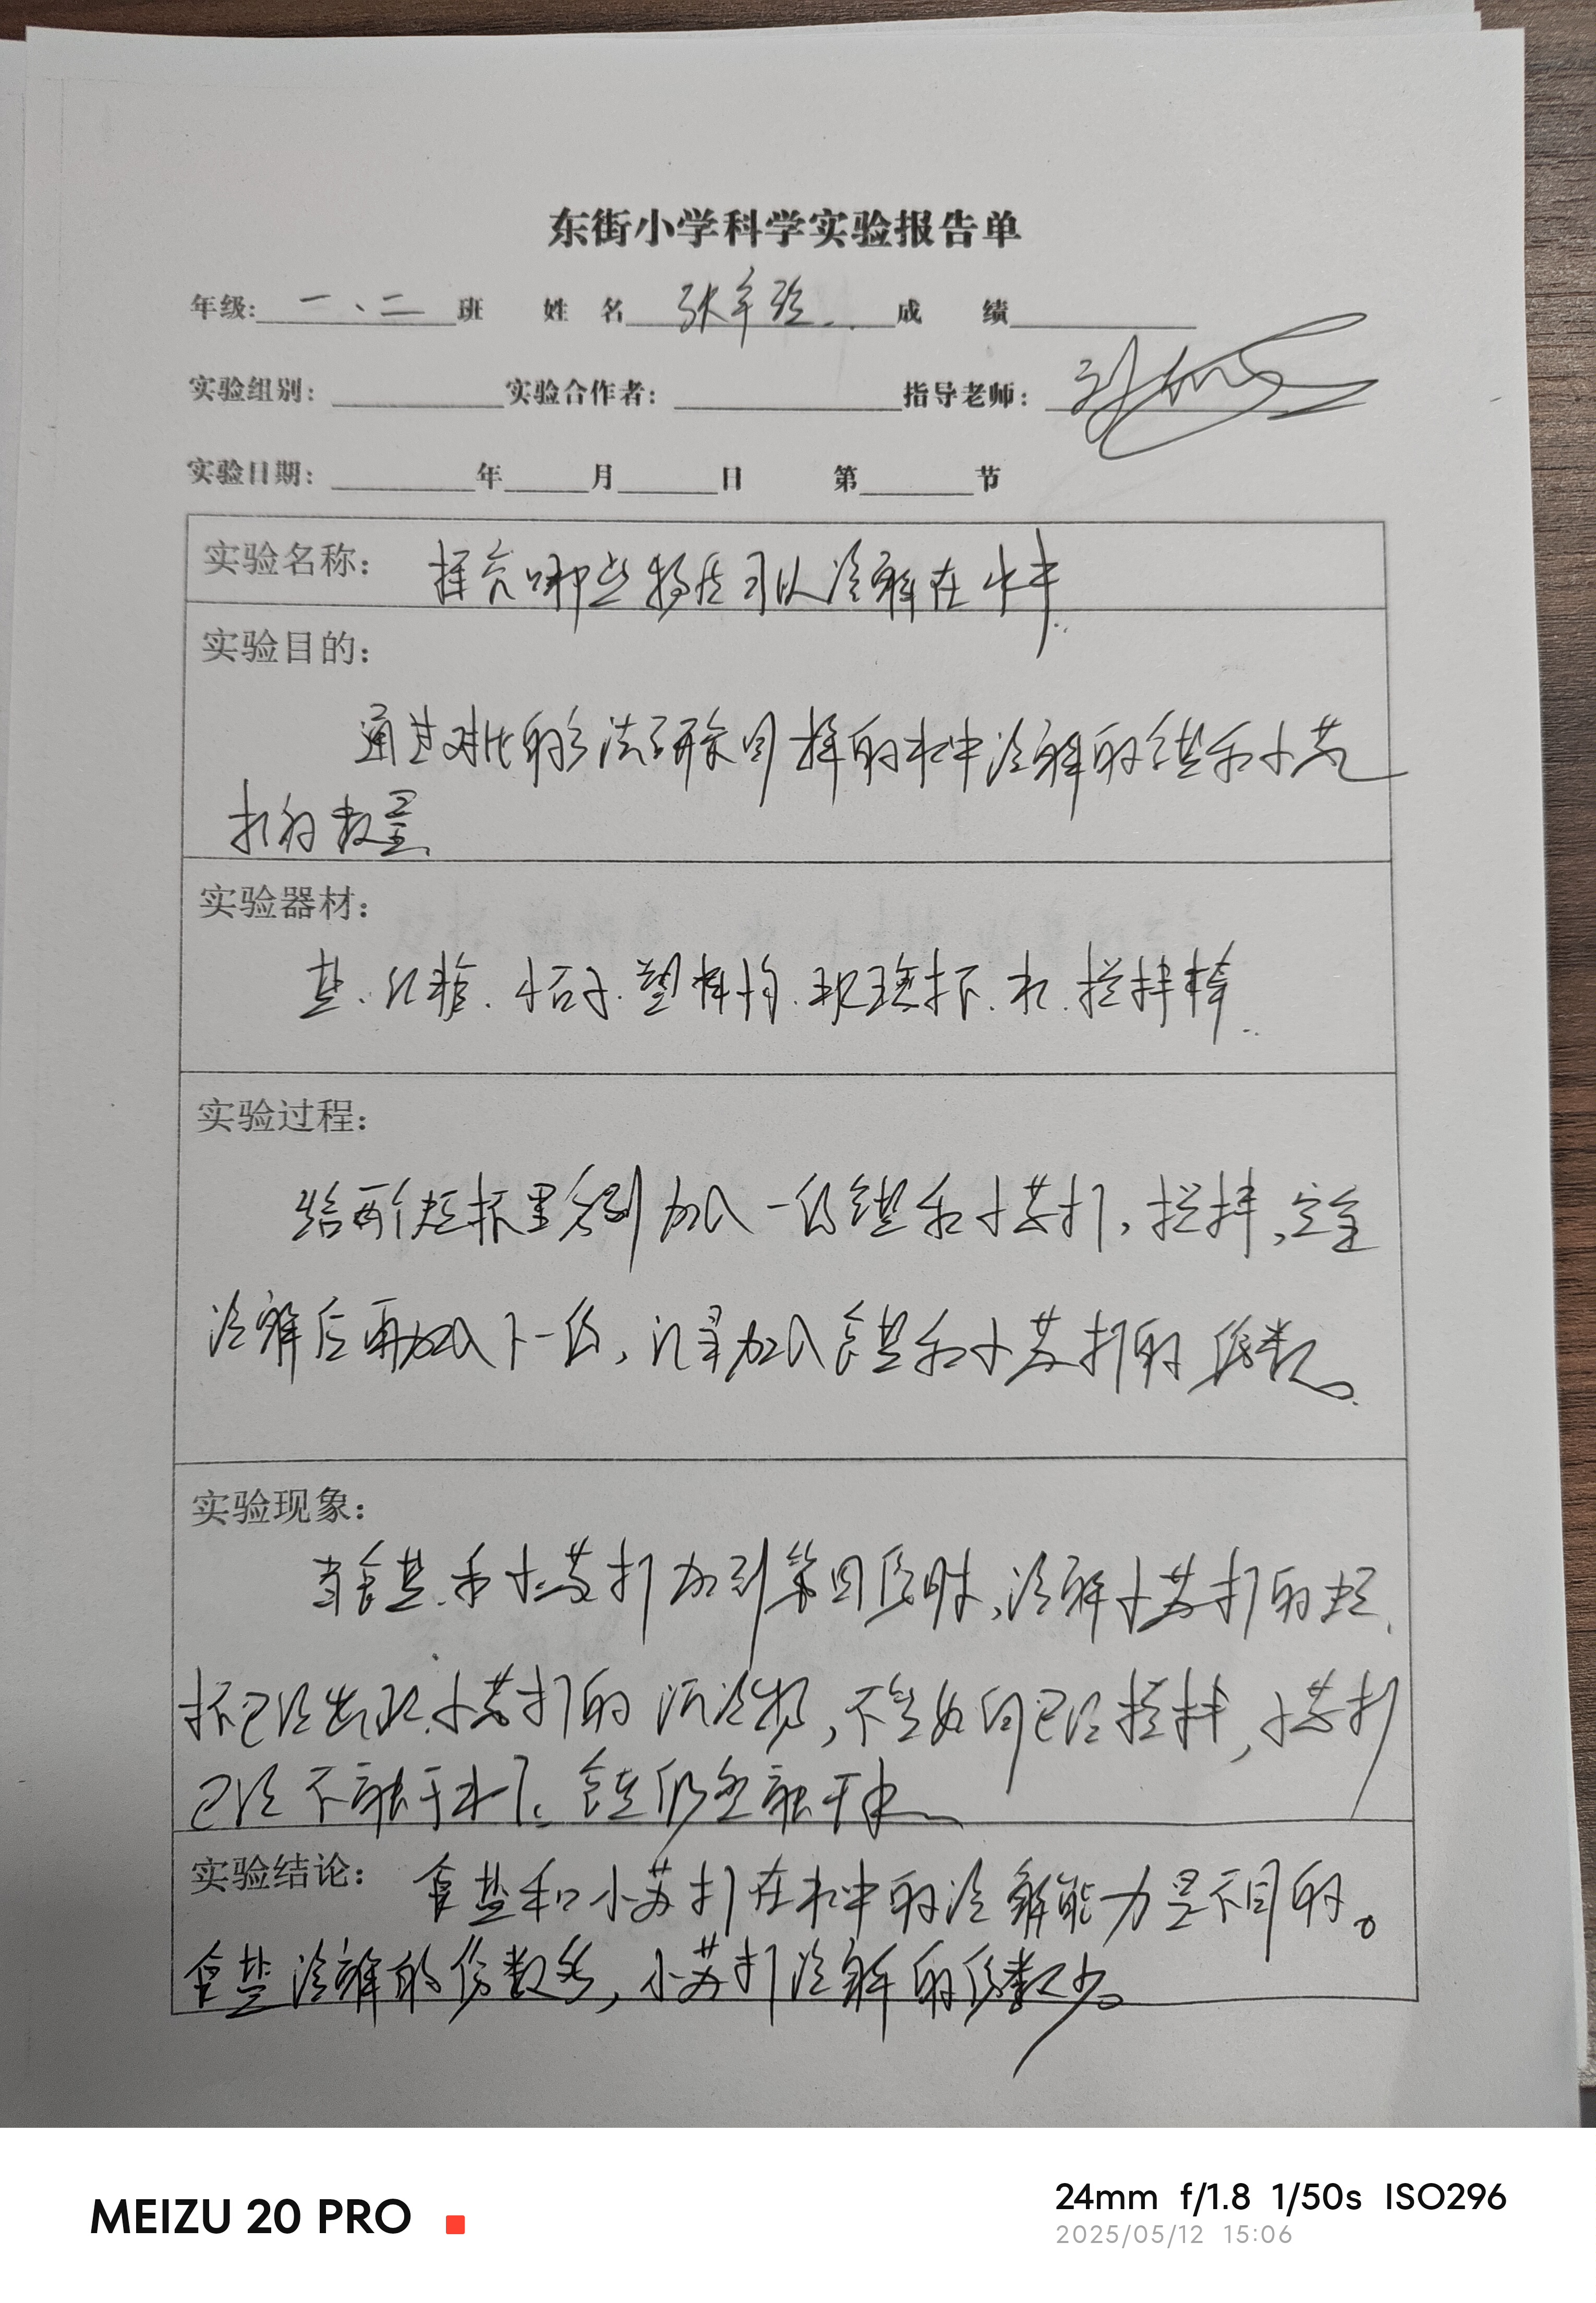 东街小学科学实验报告单
年级: 一、二 班 姓 名 张 成 绩
实验组别: 实验合作者: 指导老师:
实验日期: 年 月 日 第 节
实验名称: 探究哪些物质可以溶解在水中
实验目的:
通过对比的方法研究同样的水中溶解的食盐和小苏
打的数量
实验器材:
盐、红糖、小石子、塑料勺、玻璃杯、水、搅拌棒
实验过程:
给两个烧杯里分别加入一份食盐和小苏打,搅拌,完全
溶解后再加入下一份,记录加入食盐和小苏打的份数。
实验现象:
当食盐和小苏打加到第四份时,溶解小苏打的烧
杯已经出现小苏打的沉淀物,不管如何已经搅拌,小苏打
已经不融于水了。食盐仍全融于水
实验结论: 食盐和小苏打在水中的溶解能力是不同的。
食盐溶解的份数多,小苏打溶解的份数少。
MEIZU 20 PRO
24mm f/1.8 1/50s ISO296
2025/05/12 15:06